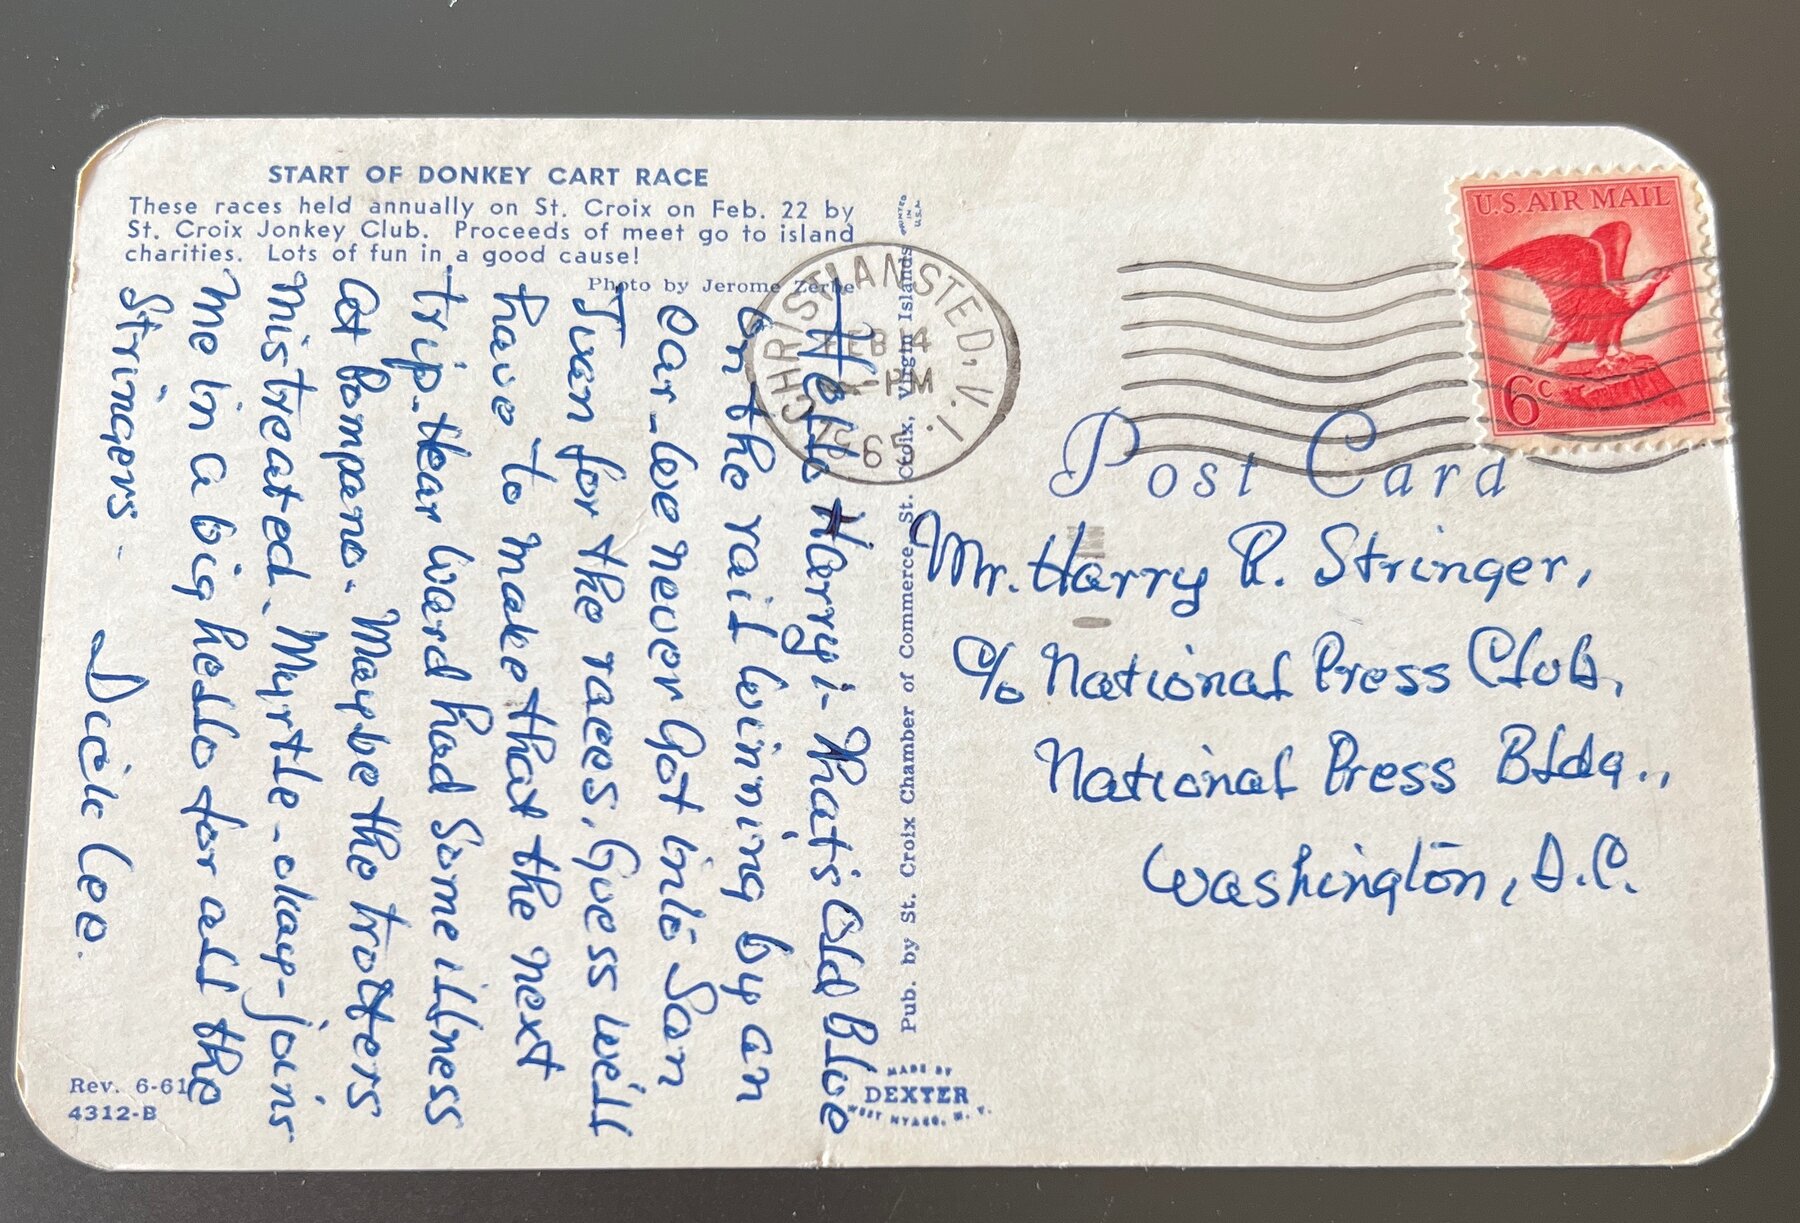 START OF DONKEY CART RACE
These races held annually on St. Croix on Feb. 22 by
St. Croix Jonkey Club. Proceeds of meet go to island
charities. Lots of fun in a good cause!
Photo by Jerome Zerbe
Hello Harry:- That's Old Blue
on the rail wining by an
ear-we never Got into San
Juan for the races. Guess we'll
have to make that the next
trip-Hear Ward had Some illness
at Pompano. Maybe the trotters
mistreated. Myrtle-okay-joins
me in a big hello for all the
Stringers-
Dick Lee.
Rev. 6-61
4312-B
PRINTED
IN
U.S.A.
Pub. by St. Croix Chamber of Commerce, St. Croix, Virgin Islands
MADE BY
DEXTER
WEST NYACK, N. Y.
CHRISTIANSTED, V. I.
FEB 4
PM
U.S. AIR MAIL
6c
Post Card
Mr. Harry R. Stringer,
c/o National Press Club,
National Press Bldg.,
Washington, D.C.